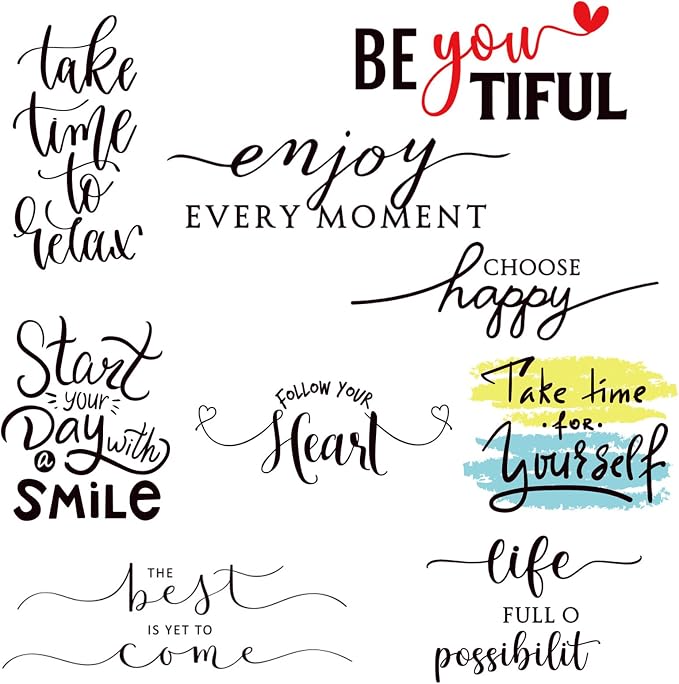 take
time
to
relax
BE you
TIFUL
enjoy
EVERY MOMENT
CHOOSE
happy
Start
your
Day with
a
SMiLe
FOLLOW YOUR
Heart
Take time
•FOR•
Yourself
THE
best
IS YET TO
come
life
FULL O
possibilit